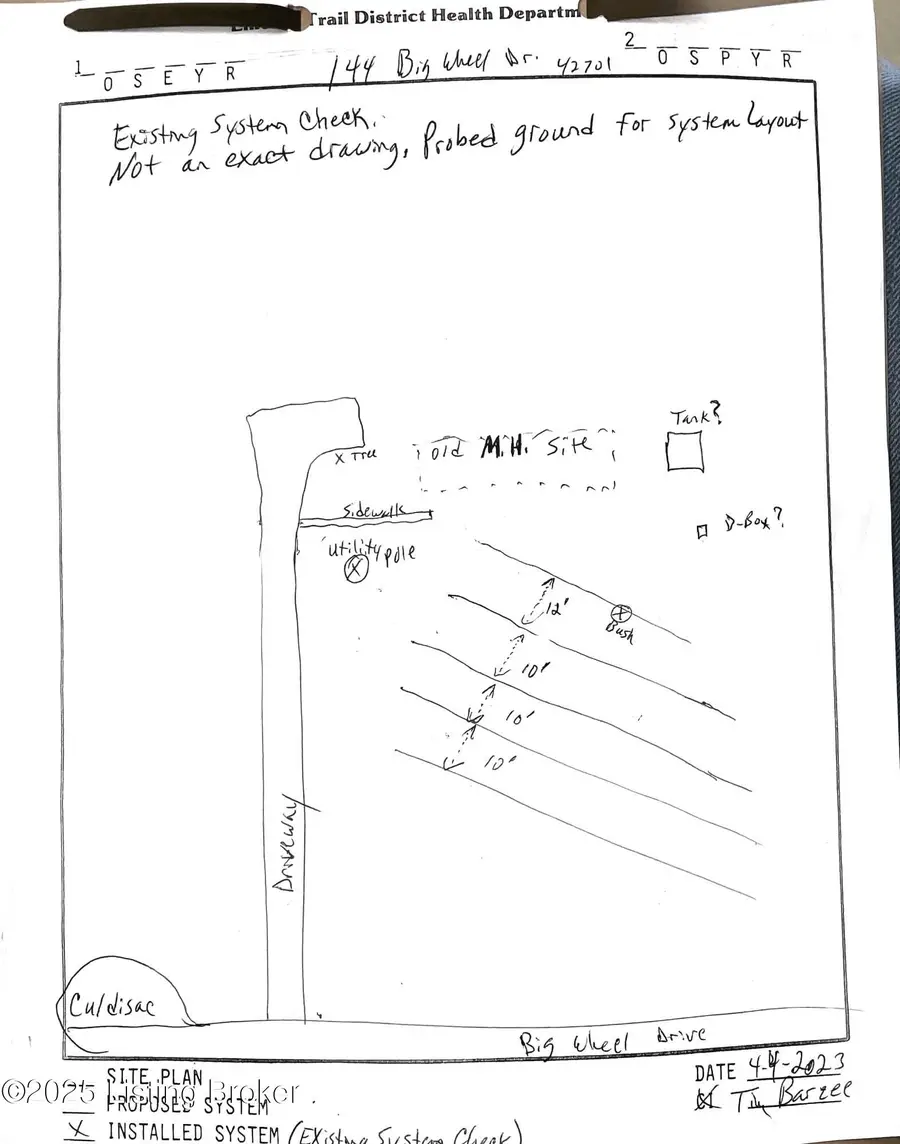 Trail District Health Departm
1 O S E Y R
144 Big Wheel Dr. 42701
2 O S P Y R
Existing System Check.
Not an exact drawing, Probed ground for system Layout
Tank?
X Tree
old M.H. Site
Sidewalk
D-Box?
utility pole
X
12'
X
Bush
10'
10'
10'
Driveway
Culdisac
Big Wheel Drive
SITE PLAN
DATE 4-4-2023
©2025 Listing Broker
PROPOSED SYSTEM
X INSTALLED SYSTEM (Existing System Check)